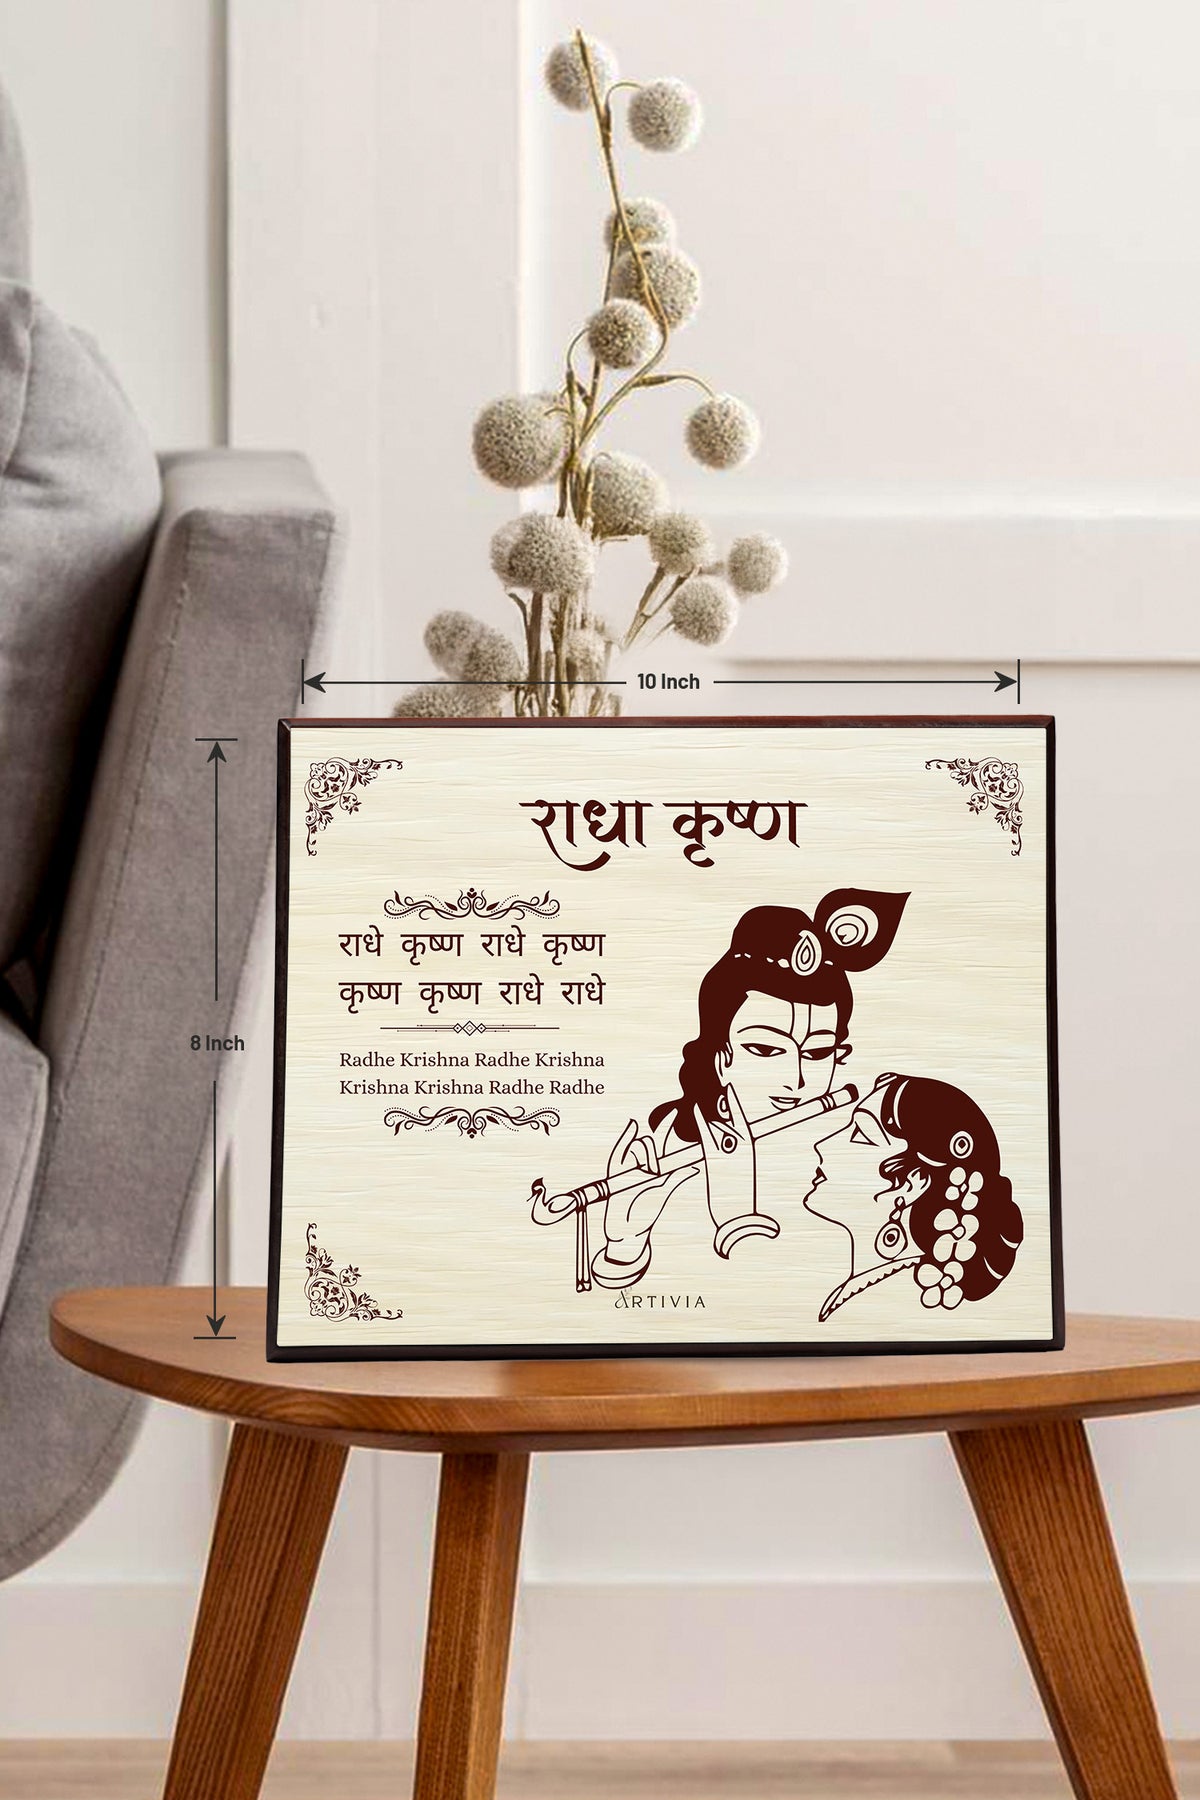 10 Inch
8 Inch
राधा कृष्ण
राधे कृष्ण राधे कृष्ण
कृष्ण कृष्ण राधे राधे
Radhe Krishna Radhe Krishna
Krishna Krishna Radhe Radhe
ARTIVIA